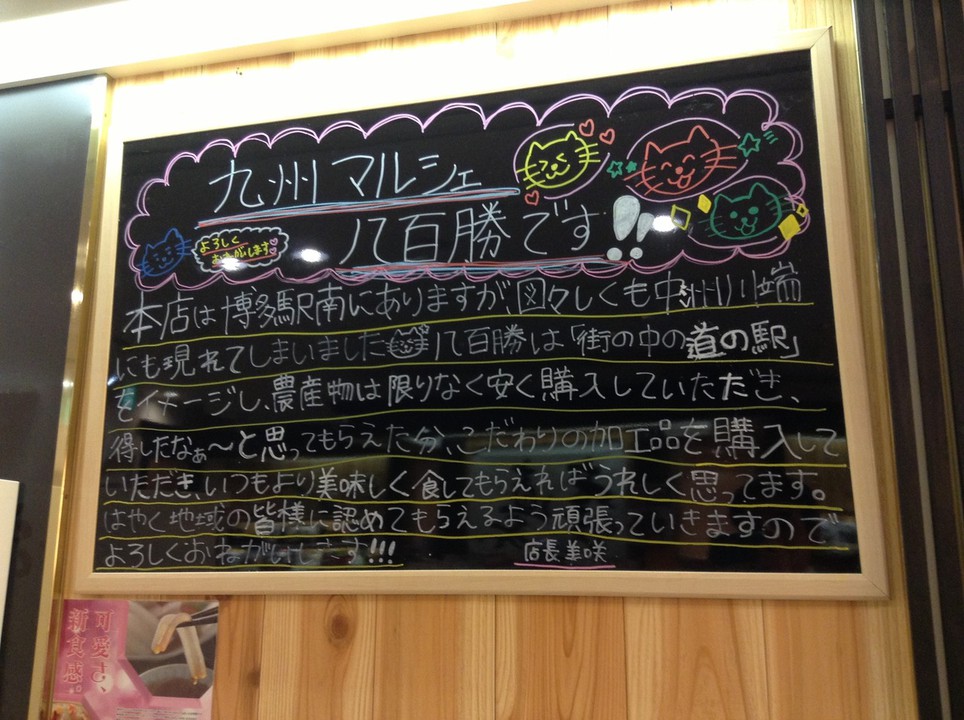 九州マルシェ
八百勝です!!
よろしく
おねがいします
本店は博多駅南にありますが、図々しくも中洲川端
にも現れてしまいました 八百勝は「街の中の道の駅」
をイメージし、農産物は限りなく安く購入していただき、
得したなぁ〜と思ってもらえた分、こだわりの加工品を購入して
いただき、いつもより美味しく食してもらえればうれしく思ってます。
はやく地域の皆様に認めてもらえるよう頑張っていきますので
よろしくおねがいします!!!
店長 美咲
可愛さ、
新食感。